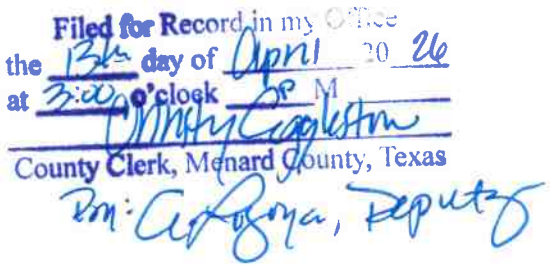 Filed for Record in my Office
the 13th day of April 20 26
at 3:00 o'clock P M
Christy Eggleston
County Clerk, Menard County, Texas
By: , Deputy